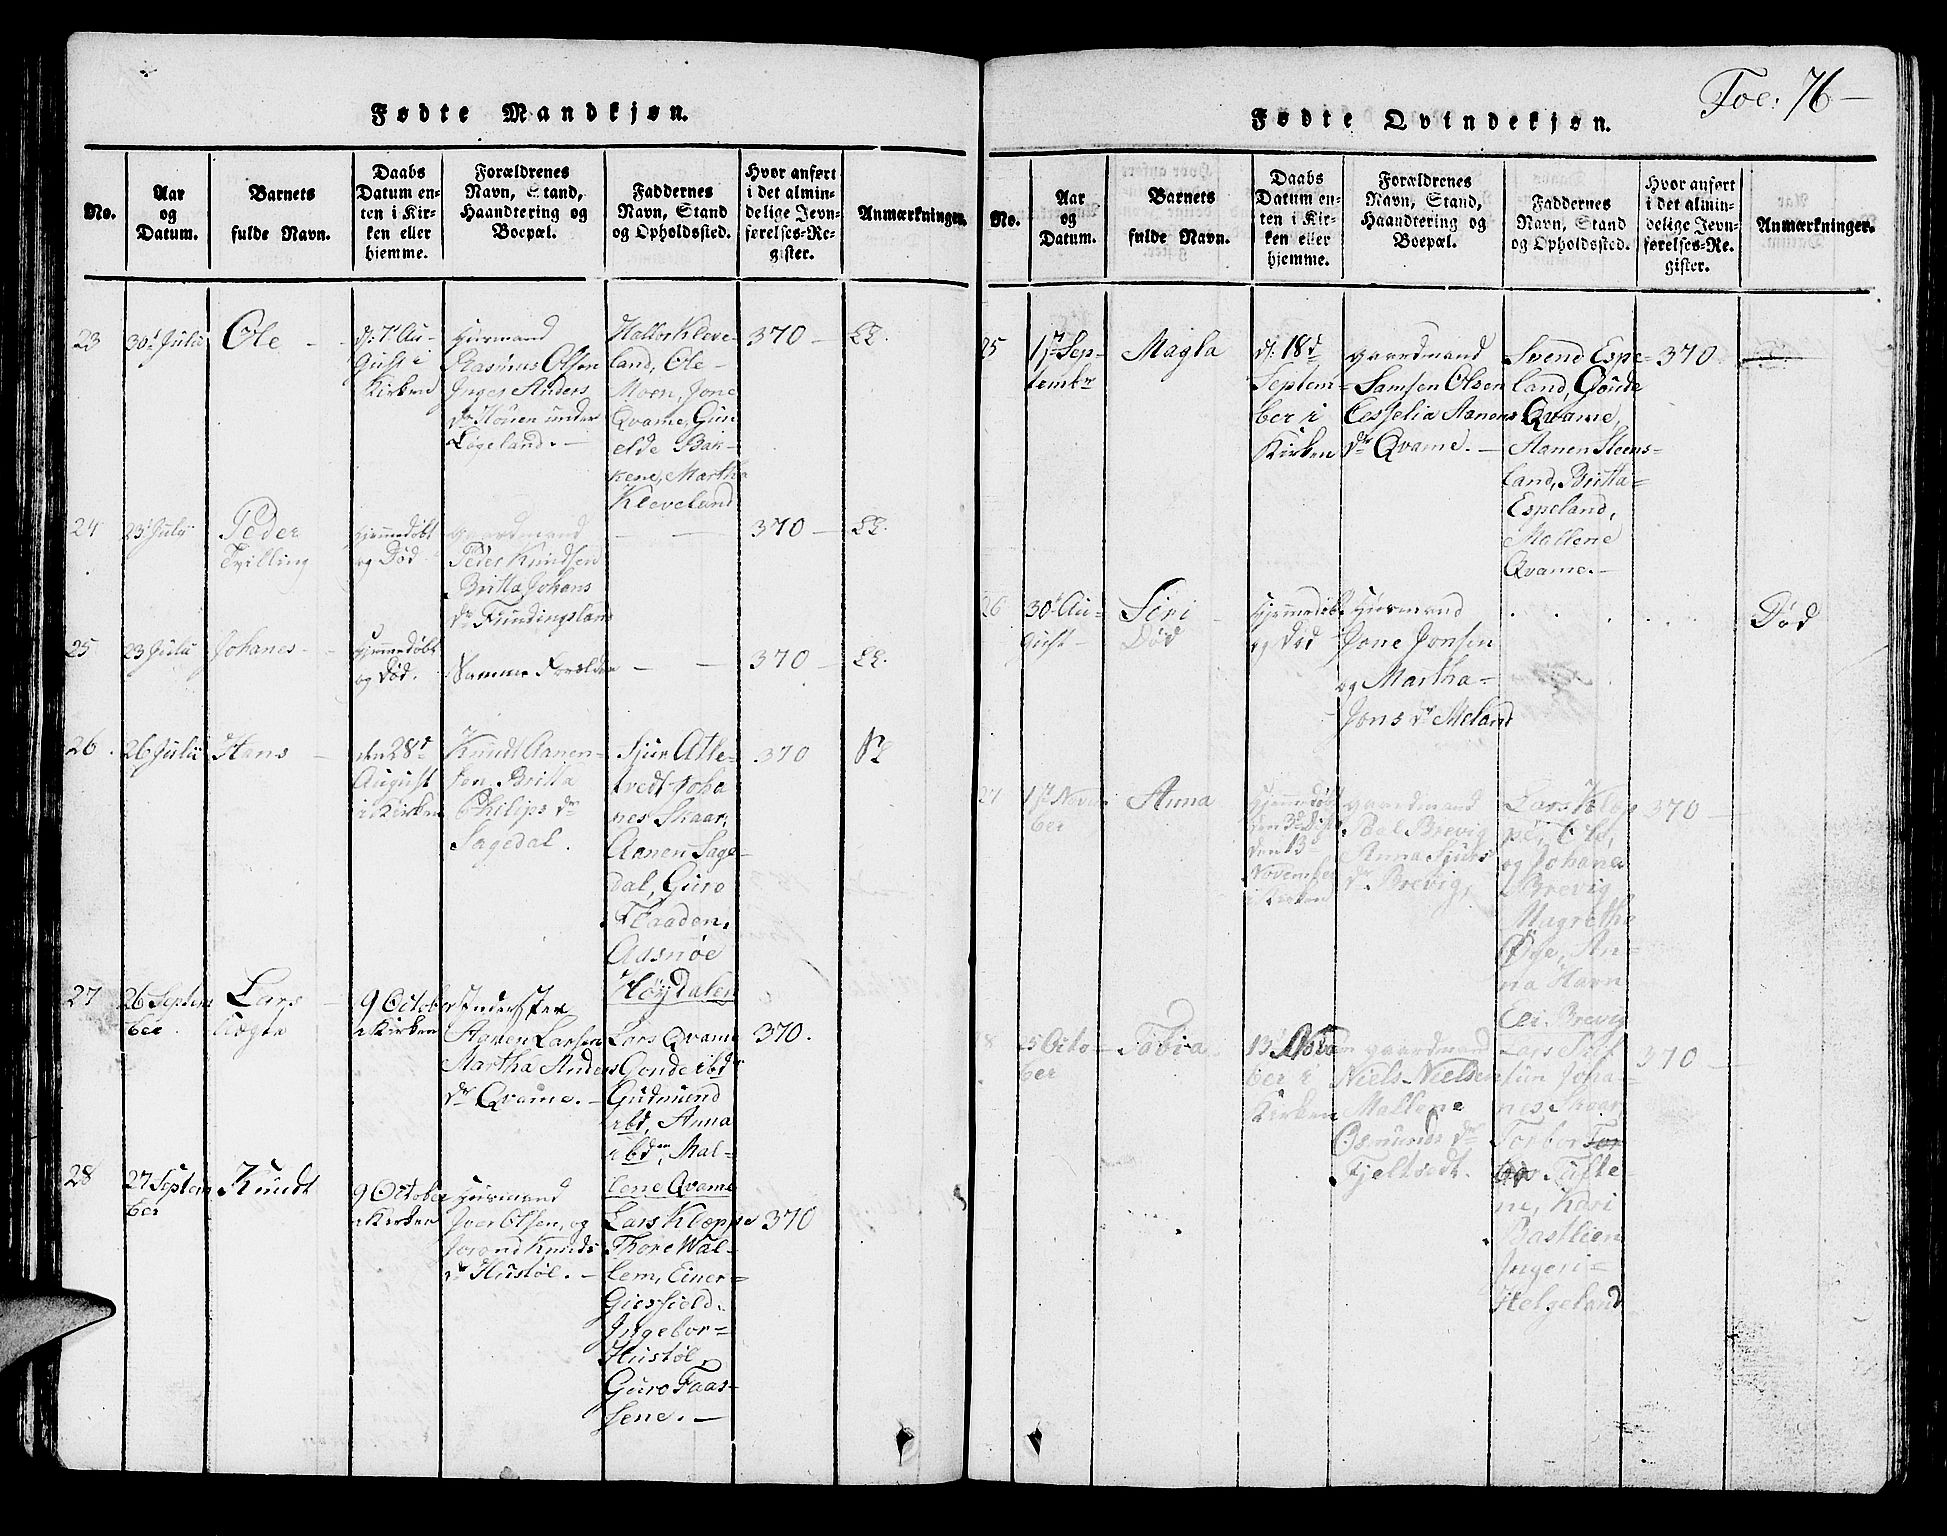 Foe: 76 —
Fødte Mandkjøn.
No.
Aar
og
Datum.
Barnets
fulde Navn.
Daabs
Datum en-
ten i Kir-
ken eller
hjemme.
Forældrenes
Navn, Stand,
Haandtering og
Boepæl.
Faddernes
Navn, Stand
og Opholdssted.
Hvor anført
i det almin-
delige Jevn-
førelses-Re-
gister.
Anmærkninger.
23
30 Julii
Ole
d: 7 Au-
gust i
Kirken
Huusmand
Rasmus Olsen
Inger Anders
dr under
Løgeland. —
Kleve-
land, Ole
Moen, Jone
Qvame, Gun
elde Bak-
kene, Martha
Kleveland
370 —
24
23 July
Peder
Tvilling
Hjemmedøbt
og Død
gaardmand
Peder Knudsen
Britta Johans
dr Fundingsland
370 —
25
23 Julii
Johanes
Hjemmedøbt
og Død.
Samme Forældre
370 —
26
26 Julii
Hans
den 28d
August
i Kirken
Knudt Aanen-
sen, Britta
Philips dr
Sagedal.
Sjur Atle-
tvedt, Joha
nes Skaar,
Aanen Sage-
dal, Guro
Flaaden,
Høydalen
370
27
26 Septem
ber.
Lars
9 October
i Kirken
Aanen Larsen
Martha Anders
dr Qvame. —
Lars Qvame
Gonde ibdr
Gudmund
ibd, Anna
ibdm, Mal-
lene Qvame
370.
28
27 Septem
ber
Knudt
9 October
i Kirken
Huusmand
Iver Olsen, og
Jorond Knuds
dr Hustøl. —
Lars Kloppe
Thore Wal-
lem, Einer
Giersfield
Ingebor-
Hustøl,
Guro Faas-
sene. —
370
Fødte Qvindekjøn.
No.
Aar
og
Datum.
Barnets
fulde Navn.
Daabs
Datum en-
ten i Kir-
ken eller
hjemme.
Forældrenes
Navn, Stand,
Haandtering og
Boepæl.
Faddernes
Navn, Stand
og Opholdssted.
Hvor anført
i det almin-
delige Jevn-
førelses-Re.
gister.
Anmærkninger.
25
1st Sep-
tembr
Magla
d: 18d
Septem-
ber i
Kirken
gaardmand
Samsen Olsen
Cesselia Aanens
dr Qvame. —
Svend Espe-
land, Goude
Qvame,
Aanen Steens-
land, Britta
Espeland,
Mallene
Qvame. —
370
26
30 Au-
gust
Siri
Død
Hjemmedøbt
og Død
Huusmand
Jone Jonsen
og Martha
Jons dr Meland
Død
27
1st Novem
ber
Anna
Hjemmedøbt
den 3d
den 13d
November
i Kirken
gaardmand
Brevig
Anna Sjurs
dr Brevig,
Lars Klop
pe, Ole,
og Johana
Brevig
Magrethe
Øye, An-
na Havn
Eli Brevig
370
25 Octo
ber
Tobia
13 Novem
ber i
Kirken
gaardmand
Niels Nielsen
Mallene
Osmunds dr
Fjeltvedt.
Lars
Joha-
nes Skaar
Torbor
Tufte-
ne, Kari
Bastlien
Ingeri-
Helgeland
370